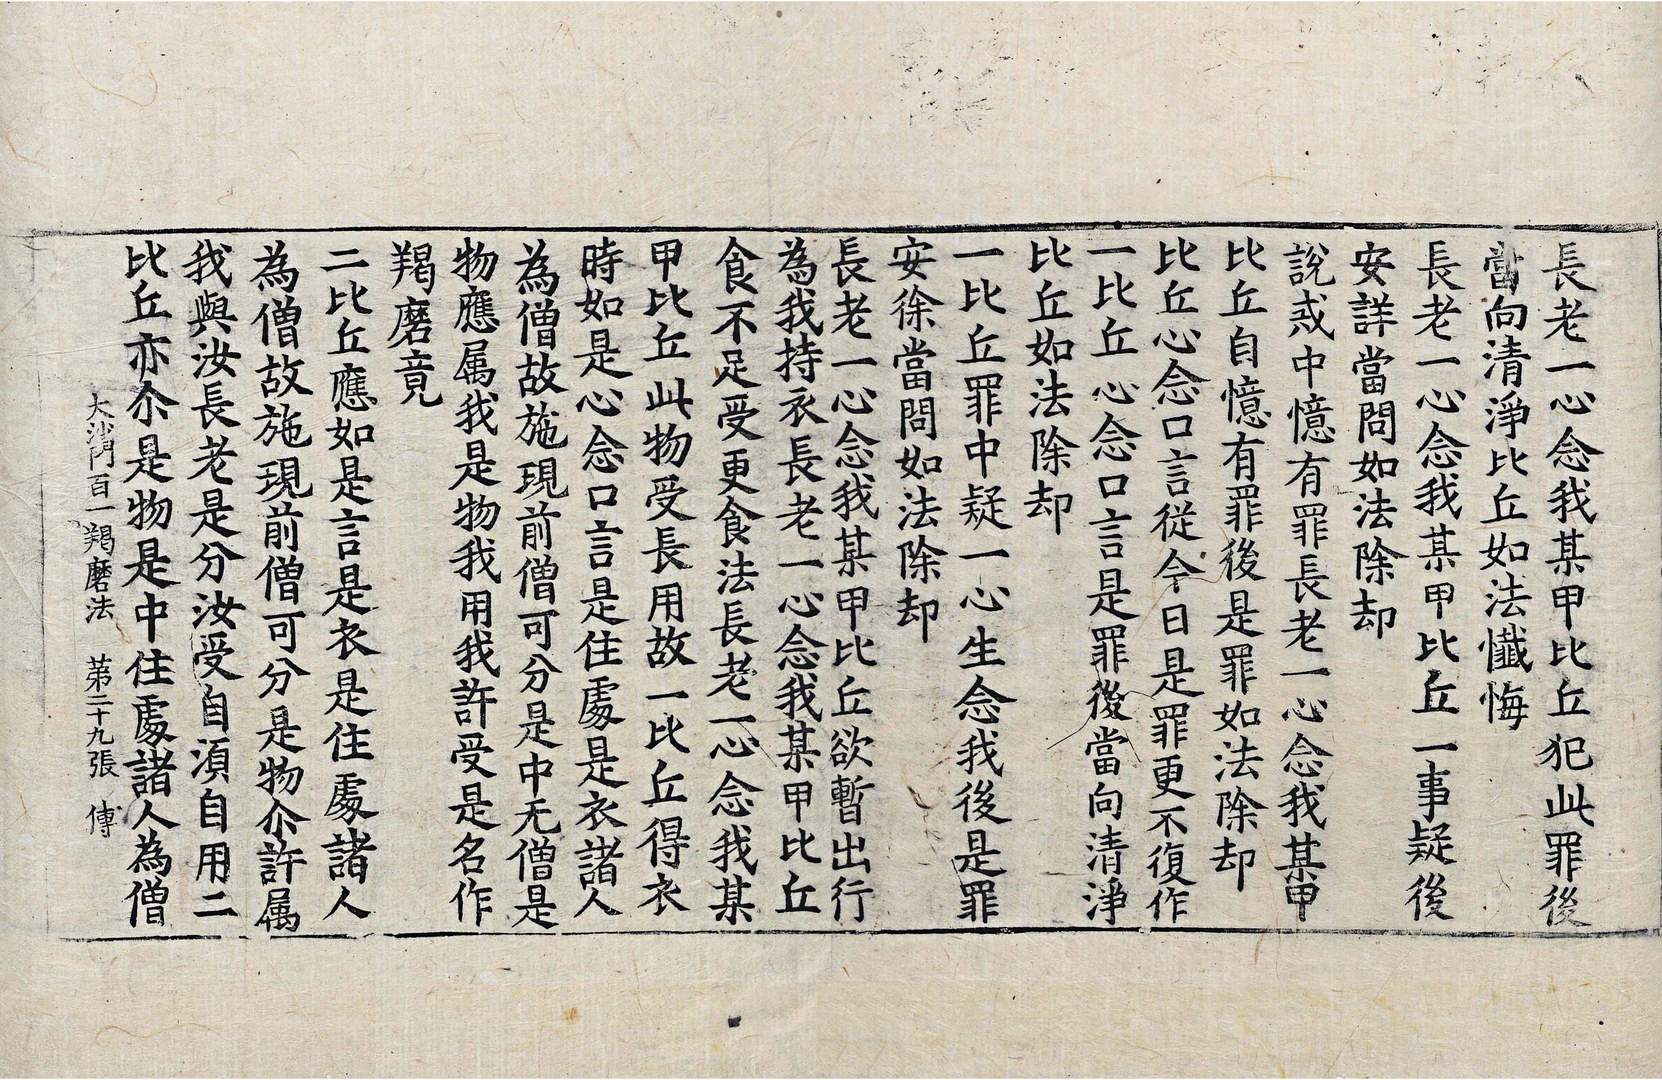 長老一心念我某甲比丘犯此罪後
當向清淨比丘如法懺悔
長老一心念我某甲比丘一事疑後
安詳當問如法除却
說戒中憶有罪長老一心念我某甲
比丘自憶有罪後是罪如法除却
比丘心念口言從今日是罪更不復作
一比丘心念口言是罪後當向清淨
比丘如法除却
一比丘罪中疑一心生念我後是罪
安徐當問如法除却
長老一心念我某甲比丘欲暫出行
為我持衣長老一心念我某甲比丘
食不足受更食法長老一心念我某
甲比丘此物受長用故一比丘得衣
時如是心念口言是住處是衣諸人
為僧故施現前僧可分是中无僧是
物應属我是物我用我許受是名作
羯磨竟
二比丘應如是言是衣是住處諸人
為僧故施現前僧可分是物尒許属
我與汝長老是分汝受自湏自用二
比丘亦尒是物是中住處諸人為僧
大沙門百一羯磨法 苐二十九張 傳